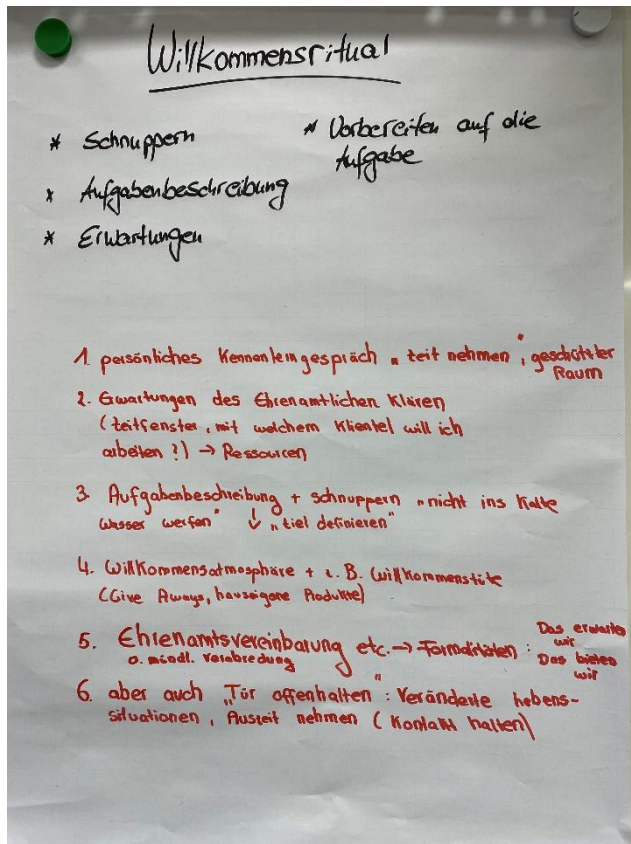 Willkommensritual
* Schnuppern
* Aufgabenbeschreibung
* Erwartungen
* Vorbereiten auf die
Aufgabe
1. persönliches Kennenlerngespräch „Zeit nehmen“, geschützter
Raum
2. Erwartungen des Ehrenamtlichen klären
(Zeitfenster, mit welchem Klientel will ich
arbeiten?) → Ressourcen
3. Aufgabenbeschreibung + schnuppern „nicht ins kalte
Wasser werfen“ ↓ „Ziel definieren“
4. Willkommensatmosphäre + z.B. Willkommenstüte
(Give Aways, hauseigene Produkte)
5. Ehrenamtsvereinbarung etc. → Formalitäten :
o. mündl. Verabredung
Das erwarten
wir
Das bieten
wir
6. aber auch „Tür offenhalten“ : Veränderte Lebens-
situationen, Auszeit nehmen (Kontakt halten)